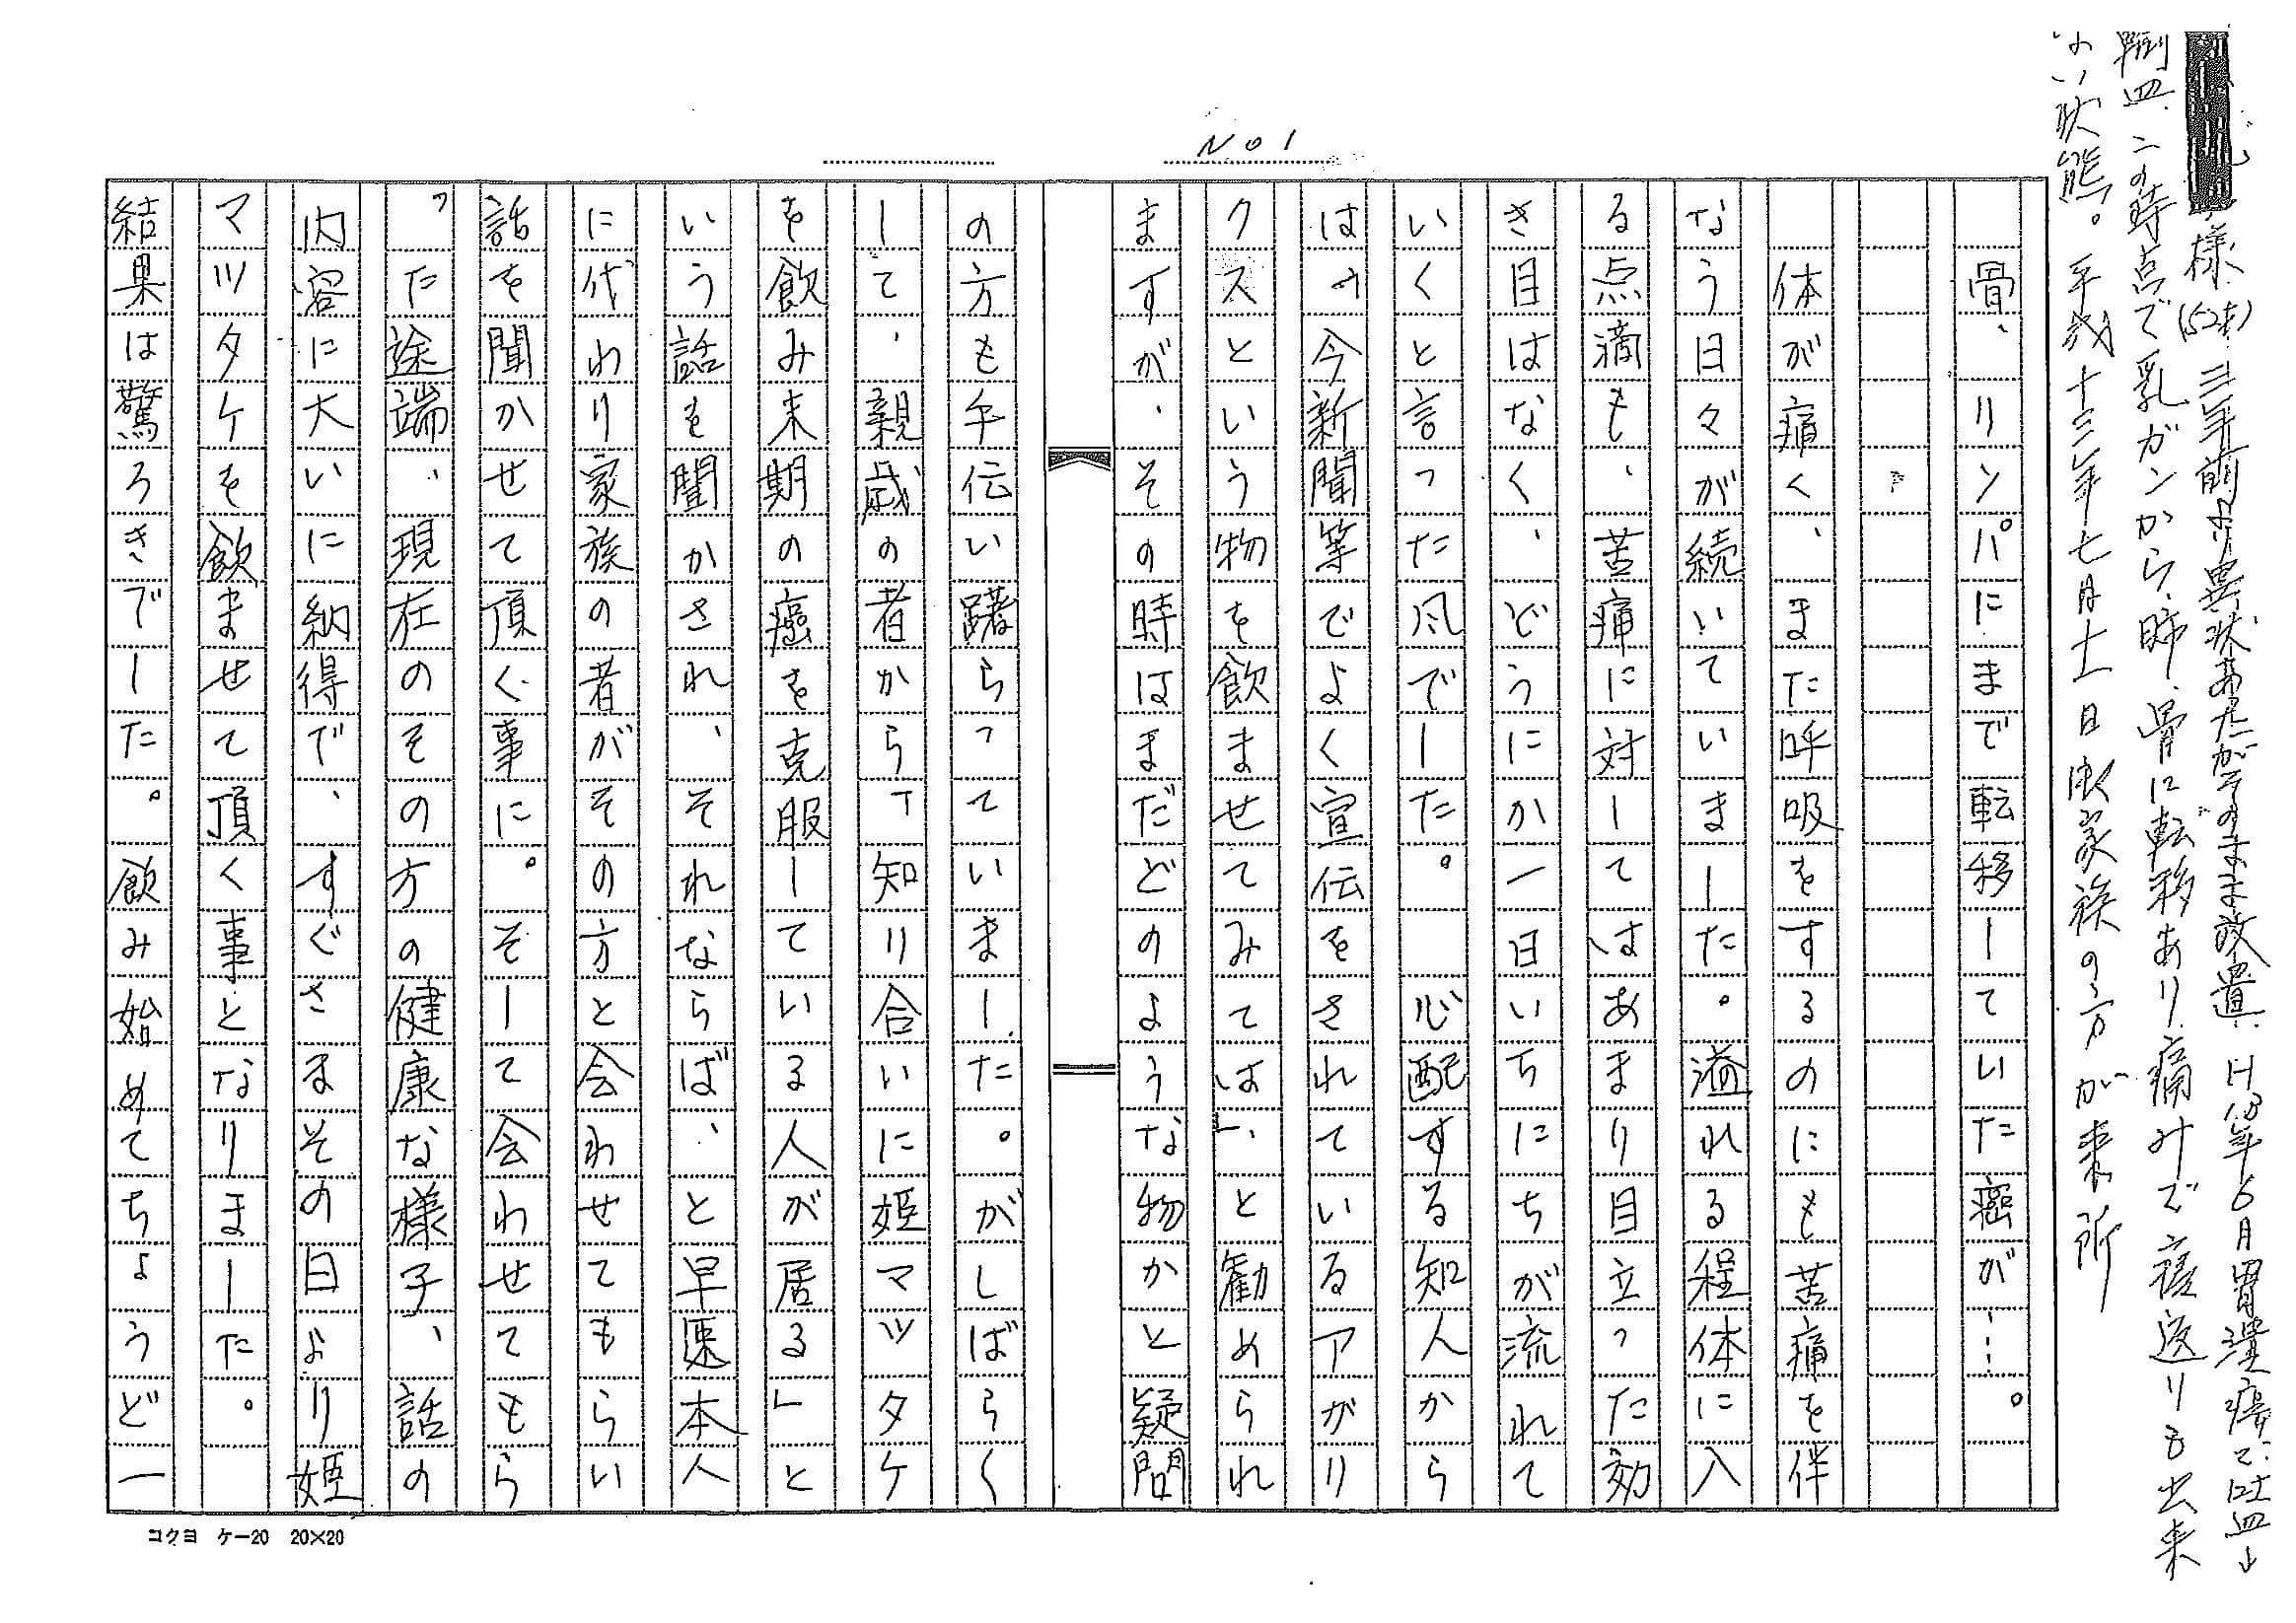 様(52才)三年前より異状あったがそのまま放置 H13年6月胃潰瘍で吐血↓
輸血、この時点で乳ガンから、肺、骨に転移あり、痛みで寝返りも出来
ない状態。平成十三年七月十一日御家族の方が来所
No 1
骨、リンパにまで転移していた癌が…。
体が痛く、また呼吸をするのにも苦痛を伴
なう日々が続いていました。溢れる程体に入
る点滴も、苦痛に対してはあまり目立った効
き目はなく、どうにか一日いちにちが流れて
いくと言った風でした。 心配する知人から
は「今新聞等でよく宣伝をされているアガリ
クスという物を飲ませてみては」、と勧められ
ますが、その時はまだどのような物かと疑問
の方も手伝い躇らっていました。がしばらく
して、親戚の者から「知り合いに姫マツタケ
を飲み末期の癌を克服している人が居る」と
いう話を聞かされ、それならば、と早速本人
に代わり家族の者がその方と会わせてもらい
話を聞かせて頂く事に。そして会わせてもら
った途端、現在のその方の健康な様子、話の
内容に大いに納得で、すぐさまその日より姫
マツタケを飲ませて頂く事となりました。
結果は驚ろきでした。飲み始めてちょうど一
コクヨ ケー20 20×20